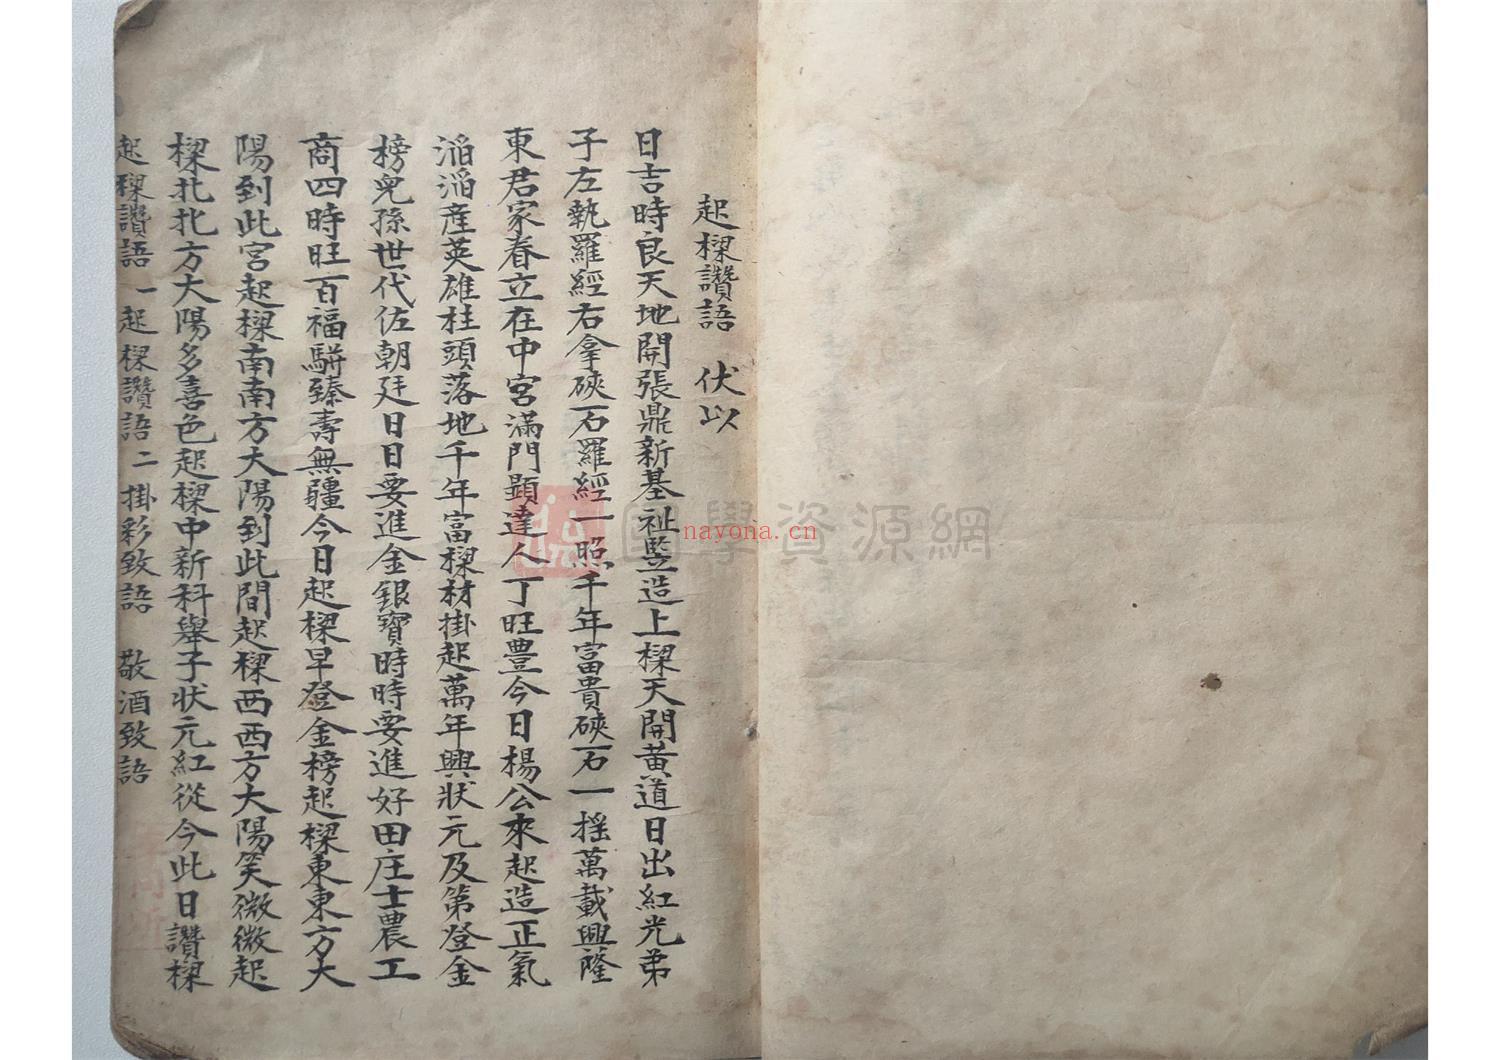 起樑讚語 伏以
日吉時良天地開張鼎新基祉監造上樑天開黃道日出紅光弟
子左執羅經右拿硤石羅經一照千年富貴硤石一搖萬載興隆
東君家春立在中宮滿門顯達人丁旺豊今日楊公來起造正氣
滔滔産英雄柱頭落地千年富樑材掛起萬年興狀元及第登金
榜兒孫世代佐朝廷日日要進金銀寶時時要進好田庄士農工
商四時旺百福駢臻壽無疆今日起樑早登金榜起樑東東方大
陽到此宮起樑南南方大陽到此間起樑西西方大陽笑微微起
樑北北方大陽多喜色起樑中新科舉子狀元紅從今此日讚樑
起樑讚語一起樑讚語二掛彩致語 敬酒致語
國學資源網
nayona.cn